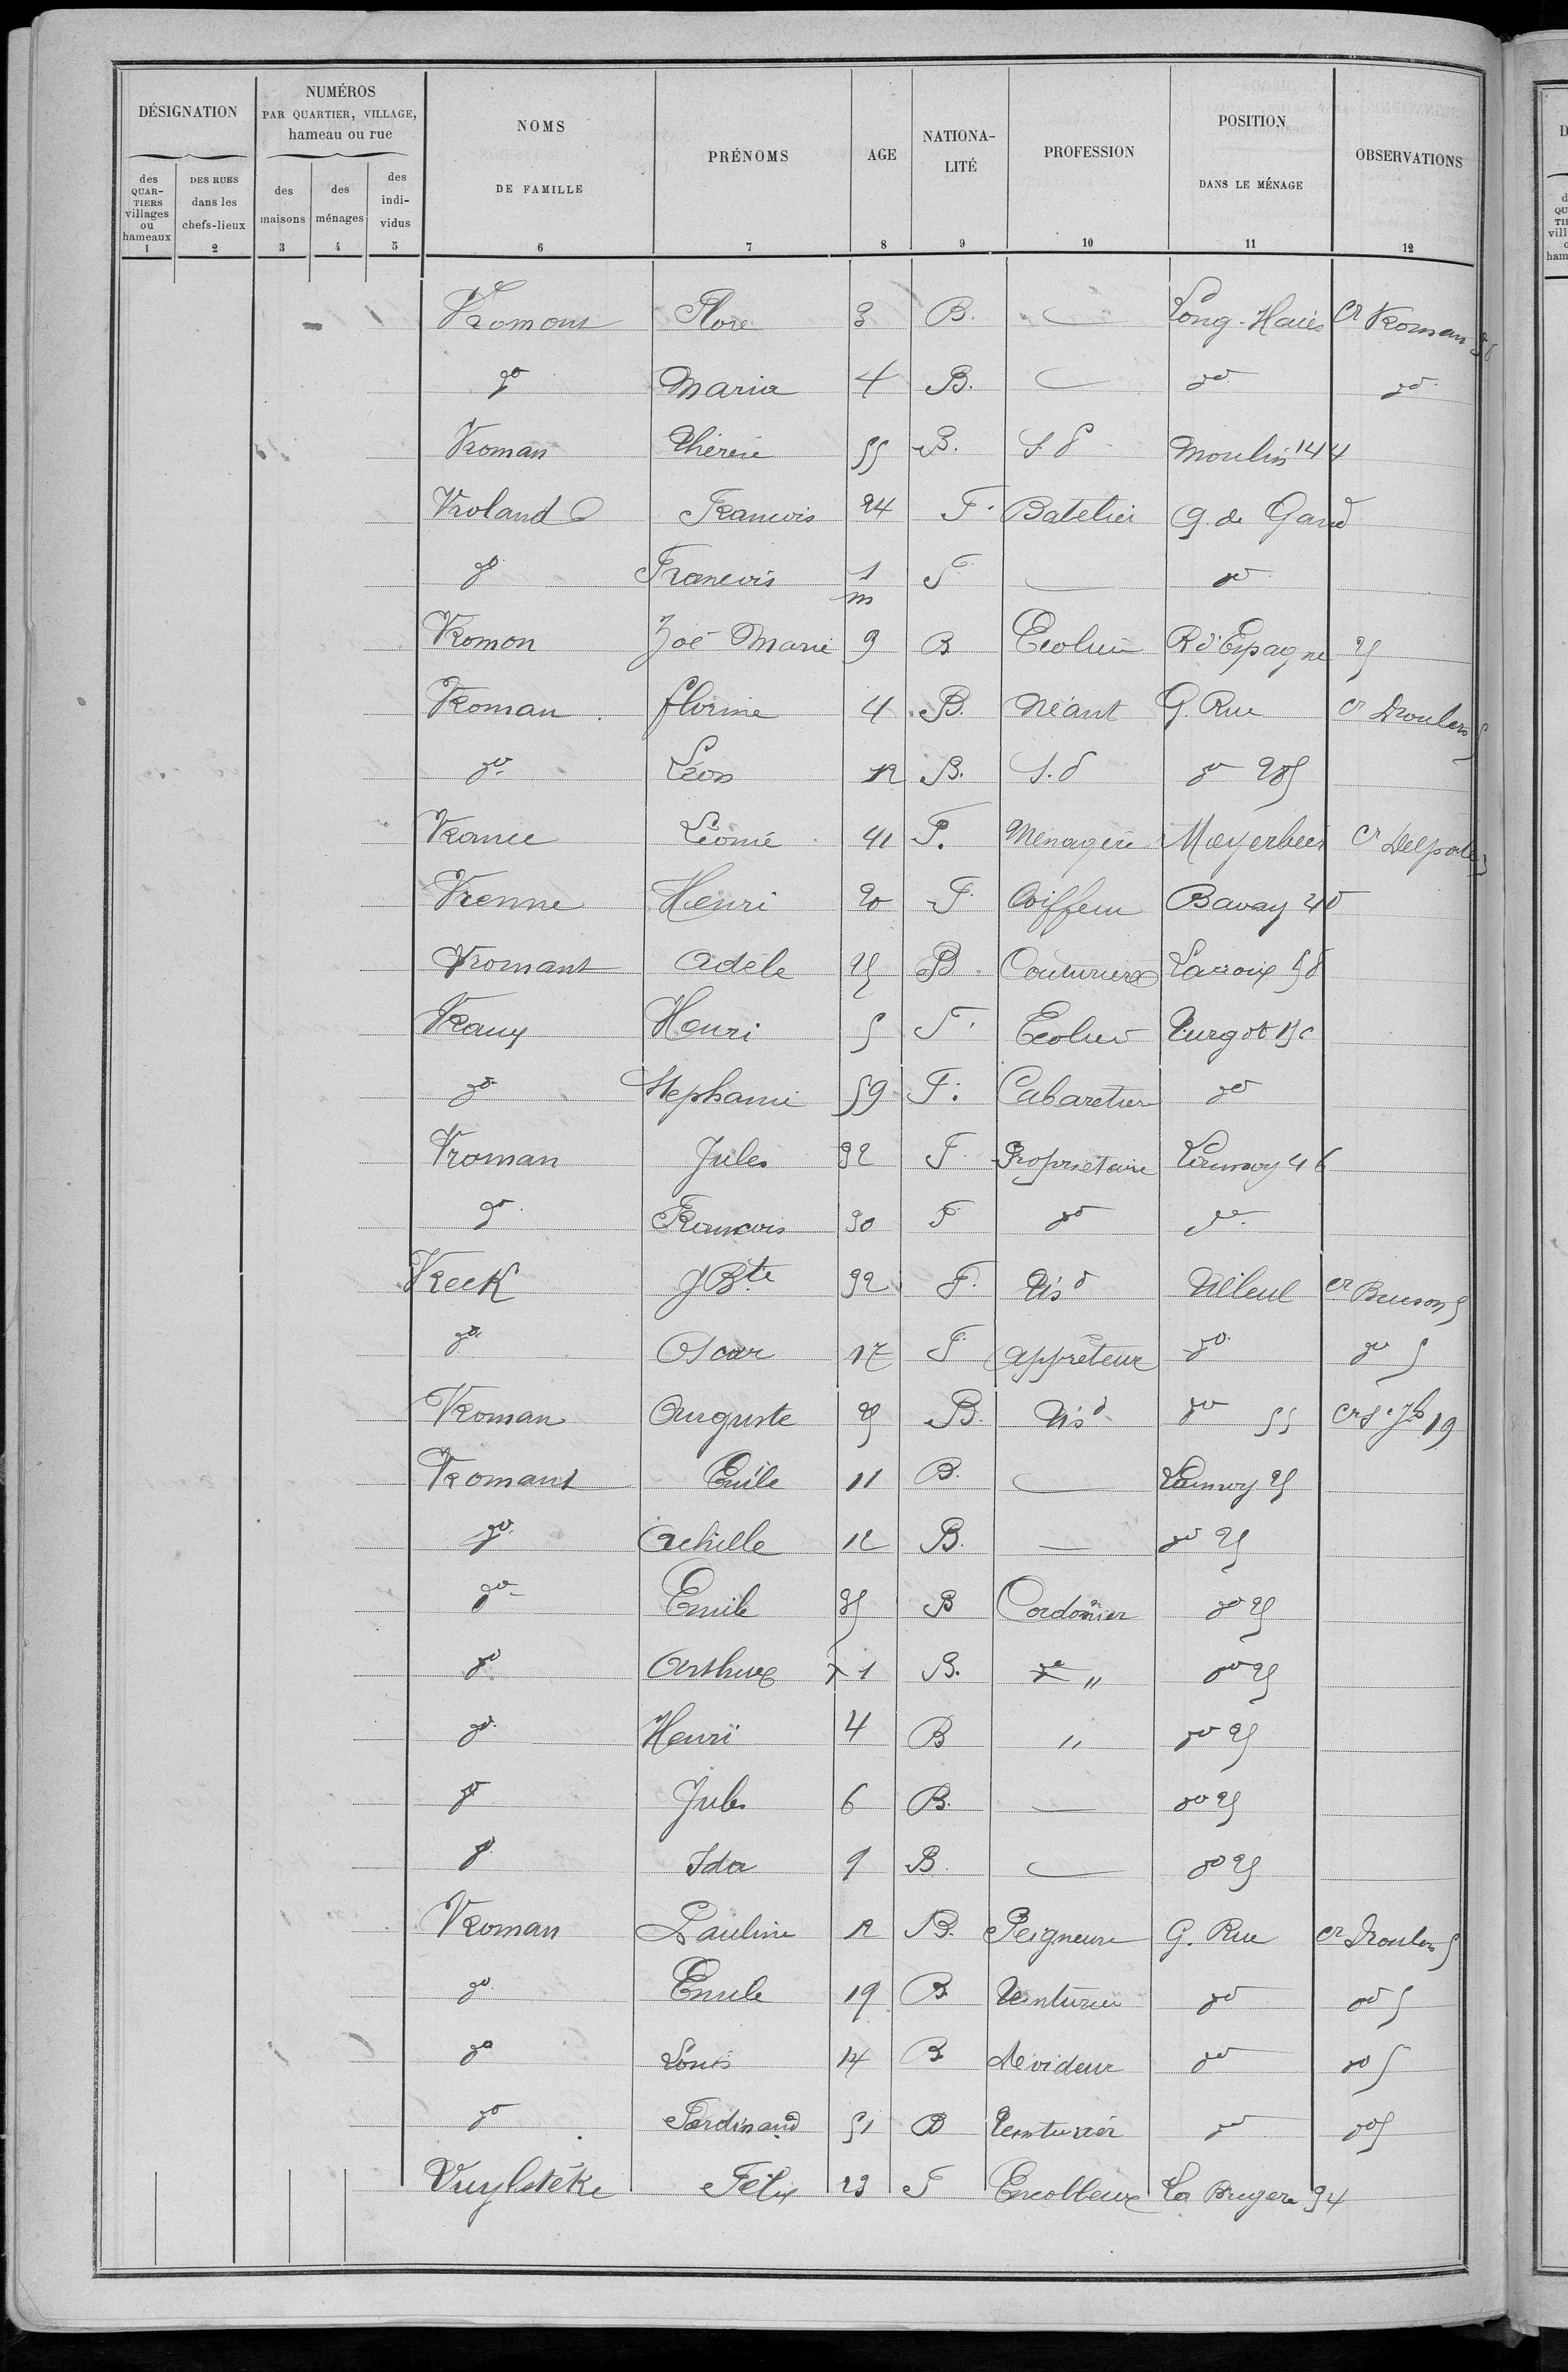 DÉSIGNATION NUMÉROS PAR QUARTIER, VILLAGE, hameau ou rue NOMS DE FAMILLE PRÉNOMS AGE NATIONA-LITÉ PROFESSION POSITION DANS LE MÉNAGE OBSERVATIONS
des QUAR-TIERS villages ou hameaux DES RUES dans les chefs-lieux des maisons des ménages des indi-vidus
1 2 3 4 5 6 7 8 9 10 11 12
Vromont Flore 3 B. — Long-Haies Cr Vroman
do Maria 4 B. — do do
Vroman Thérèse 55 B. S P Moulin 144
Vroland François 24 F. Batelier q. de Gand
do François 1 m F — do
Vromon Zoé Marie 9 B Ecolière R d'Espagne 25
Vroman Florine 4 B. Néant G. Rue Cr Droulers 5
do Léon 12 B. S. P do 285
Vrance Léonie 41 F. Ménagère Meyerbeer Cr Delporte
Vrenne Henri 20 F. Coiffeur Bavay 40
Vromant Adèle 25 B. Couturière Lacroix 58
Vraux Henri 5 F. Ecolier Turgot
do Stephanie 59 F. Cabaretier do
Vroman Jules 32 F. Propriétaire Lannoy 46
do François 30 F do do
Vreck J Bte 32 F. Tisd Tilleul cr Buison 5
do Oscar 17 F appreteur do do 5
Vroman Auguste 25 B. Tisd do 55 cr St Jh 19
Vromant Emile 11 B. — Lannoy 25
do Achille 12 B. — do 25
do Emile 35 B Cordonier do 25
do Arthur 1 B. " do 25
do Henri 4 B " do 25
do Jules 6 B. — do 25
do Ida 9 B. — do 25
Vroman Pauline 12 B. Peigneuse G. Rue cr Droulers 5
do Emile 19 B Teinturier do do 5
do Louis 14 B Dévideur do do 5
do Ferdinand 51 B Teinturier do do 5
Vuylstèke Félix 23 F Encolleur La Bruyere 94